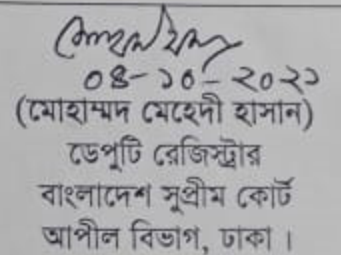 ০৪-১০-২০২১
(মোহাম্মদ মেহেদী হাসান)
ডেপুটি রেজিস্ট্রার
বাংলাদেশ সুপ্রীম কোর্ট
আপীল বিভাগ, ঢাকা।